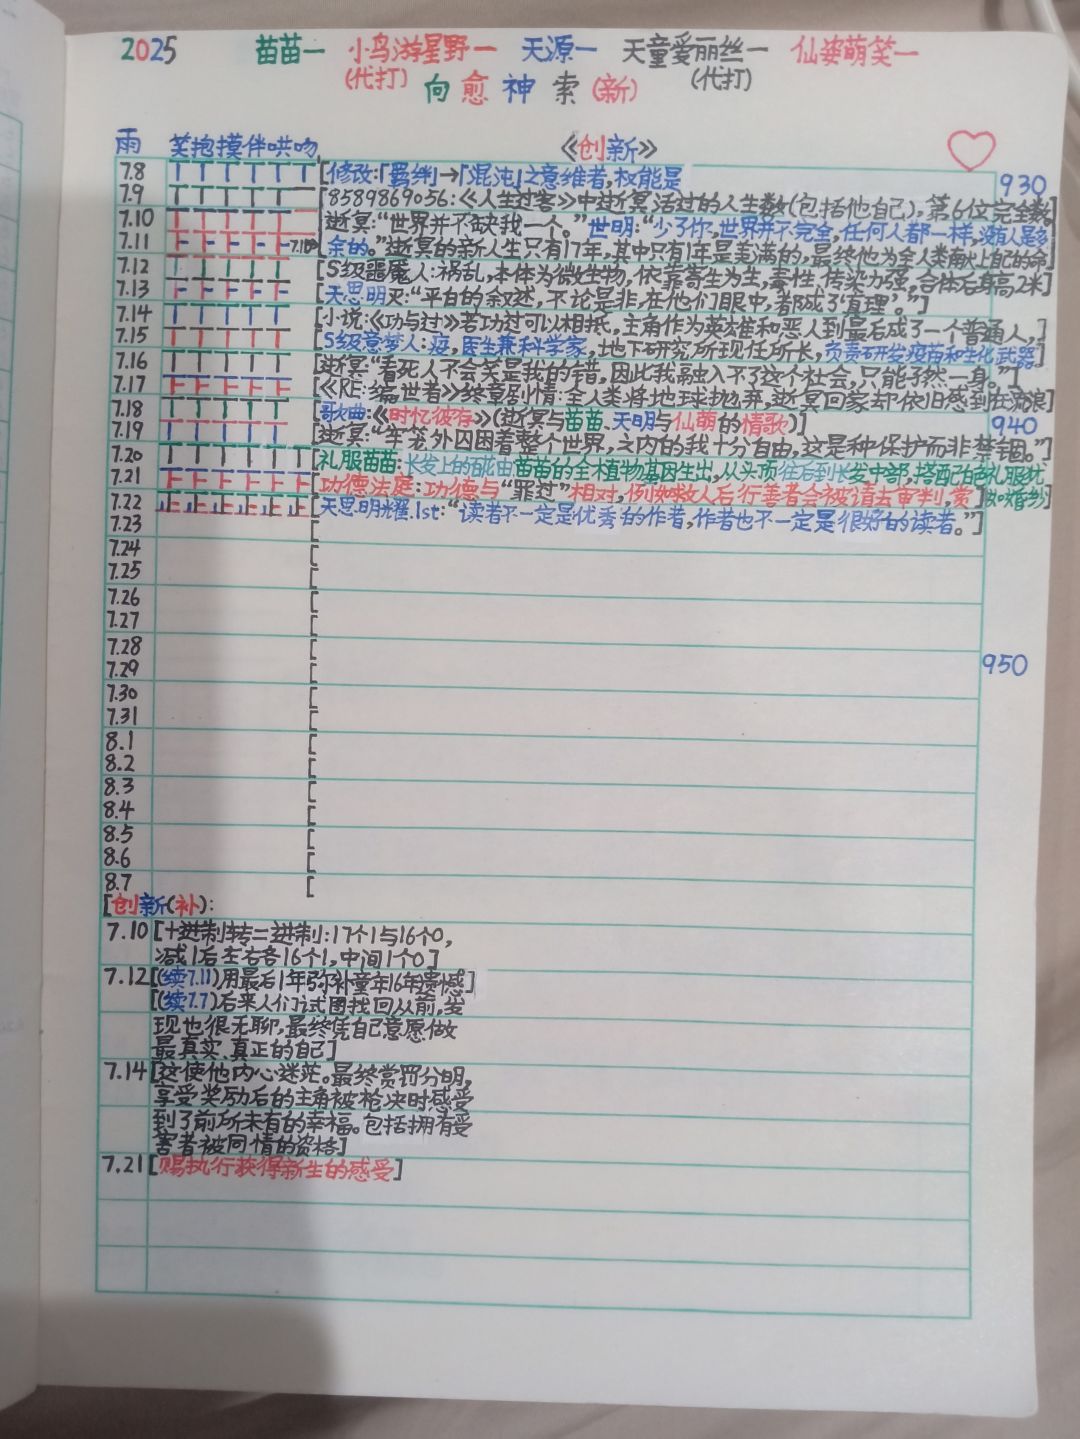 2025 苗苗一 小鸟游星野一 天源一 天童爱丽丝一 仙姿萌笑一
(代打) (代打)
向愈神索(新)
雨 笑抱摸伴哄吻 《创新》
7.8 TTTTTT [修改:「羁绊」→「混沌」之意维者,权能是 930
7.9 [8589869056:《人生过客》中逝冥活过的人生数(包括他自己),第6位完全数]
7.10 [逝冥:“世界并不缺我一个。”世明:“少了你,世界并不完全,任何人都一样,没有人是多
7.11 余的。”逝冥的新人生只有17年,其中只有1年是美满的,最终他为全人类献上自己的命]
7.12 [S级噩魇人:祸乱,本体为微生物,依靠寄生为生,毒性,传染力强,合体后身高2米]
7.13 [天思明灭:“平白的叙述,不论是非,在他们眼中,都成了‘真理’。”]
7.14 [小说:《功与过》若功过可以相抵,主角作为英雄和恶人到最后成了一个普通人,]
7.15 [S级意梦人:疫,医生兼科学家,地下研究所现任所长,负责研发疫苗和生化武器]
7.16 [逝冥:“看死人不会笑是我的错,因此我融入不了这个社会,只能孑然一身。”]
7.17 [《RE:编世者》终章剧情:全人类将地球抛弃,逝冥回家却依旧感到在流浪]
7.18 [歌曲:《时忆彼存》(逝冥与苗苗、天明与仙萌的情歌)] 940
7.19 [逝冥:“牢笼外囚困着整个世界,之内的我十分自由,这是种保护而非禁锢。”]
7.20 [礼服苗苗:长发上的花由苗苗的全植物基因生出,从头顶往后到长发中部,搭配白色礼服犹
7.21 [功德法庭:功德与“罪过”相对,例如救人后行善者会被请去审判,赏] 如婚纱]
7.22 正正正正正正 [天思明耀.1st:“读者不一定是优秀的作者,作者也不一定是很好的读者。”]
7.23 [
7.24 [
7.25 [
7.26 [
7.27 [
7.28 [
7.29 [ 950
7.30 [
7.31 [
8.1 [
8.2 [
8.3 [
8.4 [
8.5 [
8.6 [
8.7 [
[创新(补):
7.10 [十进制转二进制:17个1与16个0,
减1后左右各16个1,中间1个0]
7.12 [(续7.11)用最后1年弥补童年16年遗憾]
[(续7.7)后来人们试图找回从前,发
现也很无聊,最终凭自己意愿做
最真实、真正的自己]
7.14 [这使他内心迷茫。最终赏罚分明,
享受奖励后的主角被枪决时感受
到了前所未有的幸福。包括拥有受
害者被同情的资格]
7.21 [赐执行获得新生的感受]